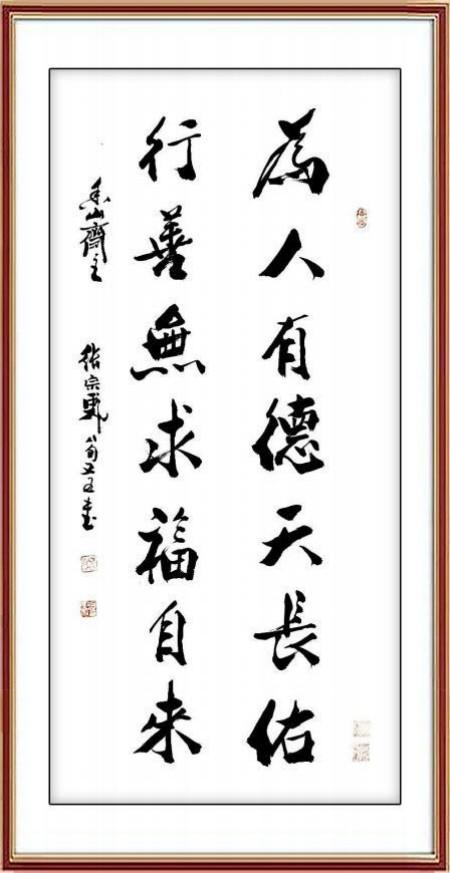 為人有德天長佑
行善無求福自來
泰山齋主
張宗彪八旬又五書